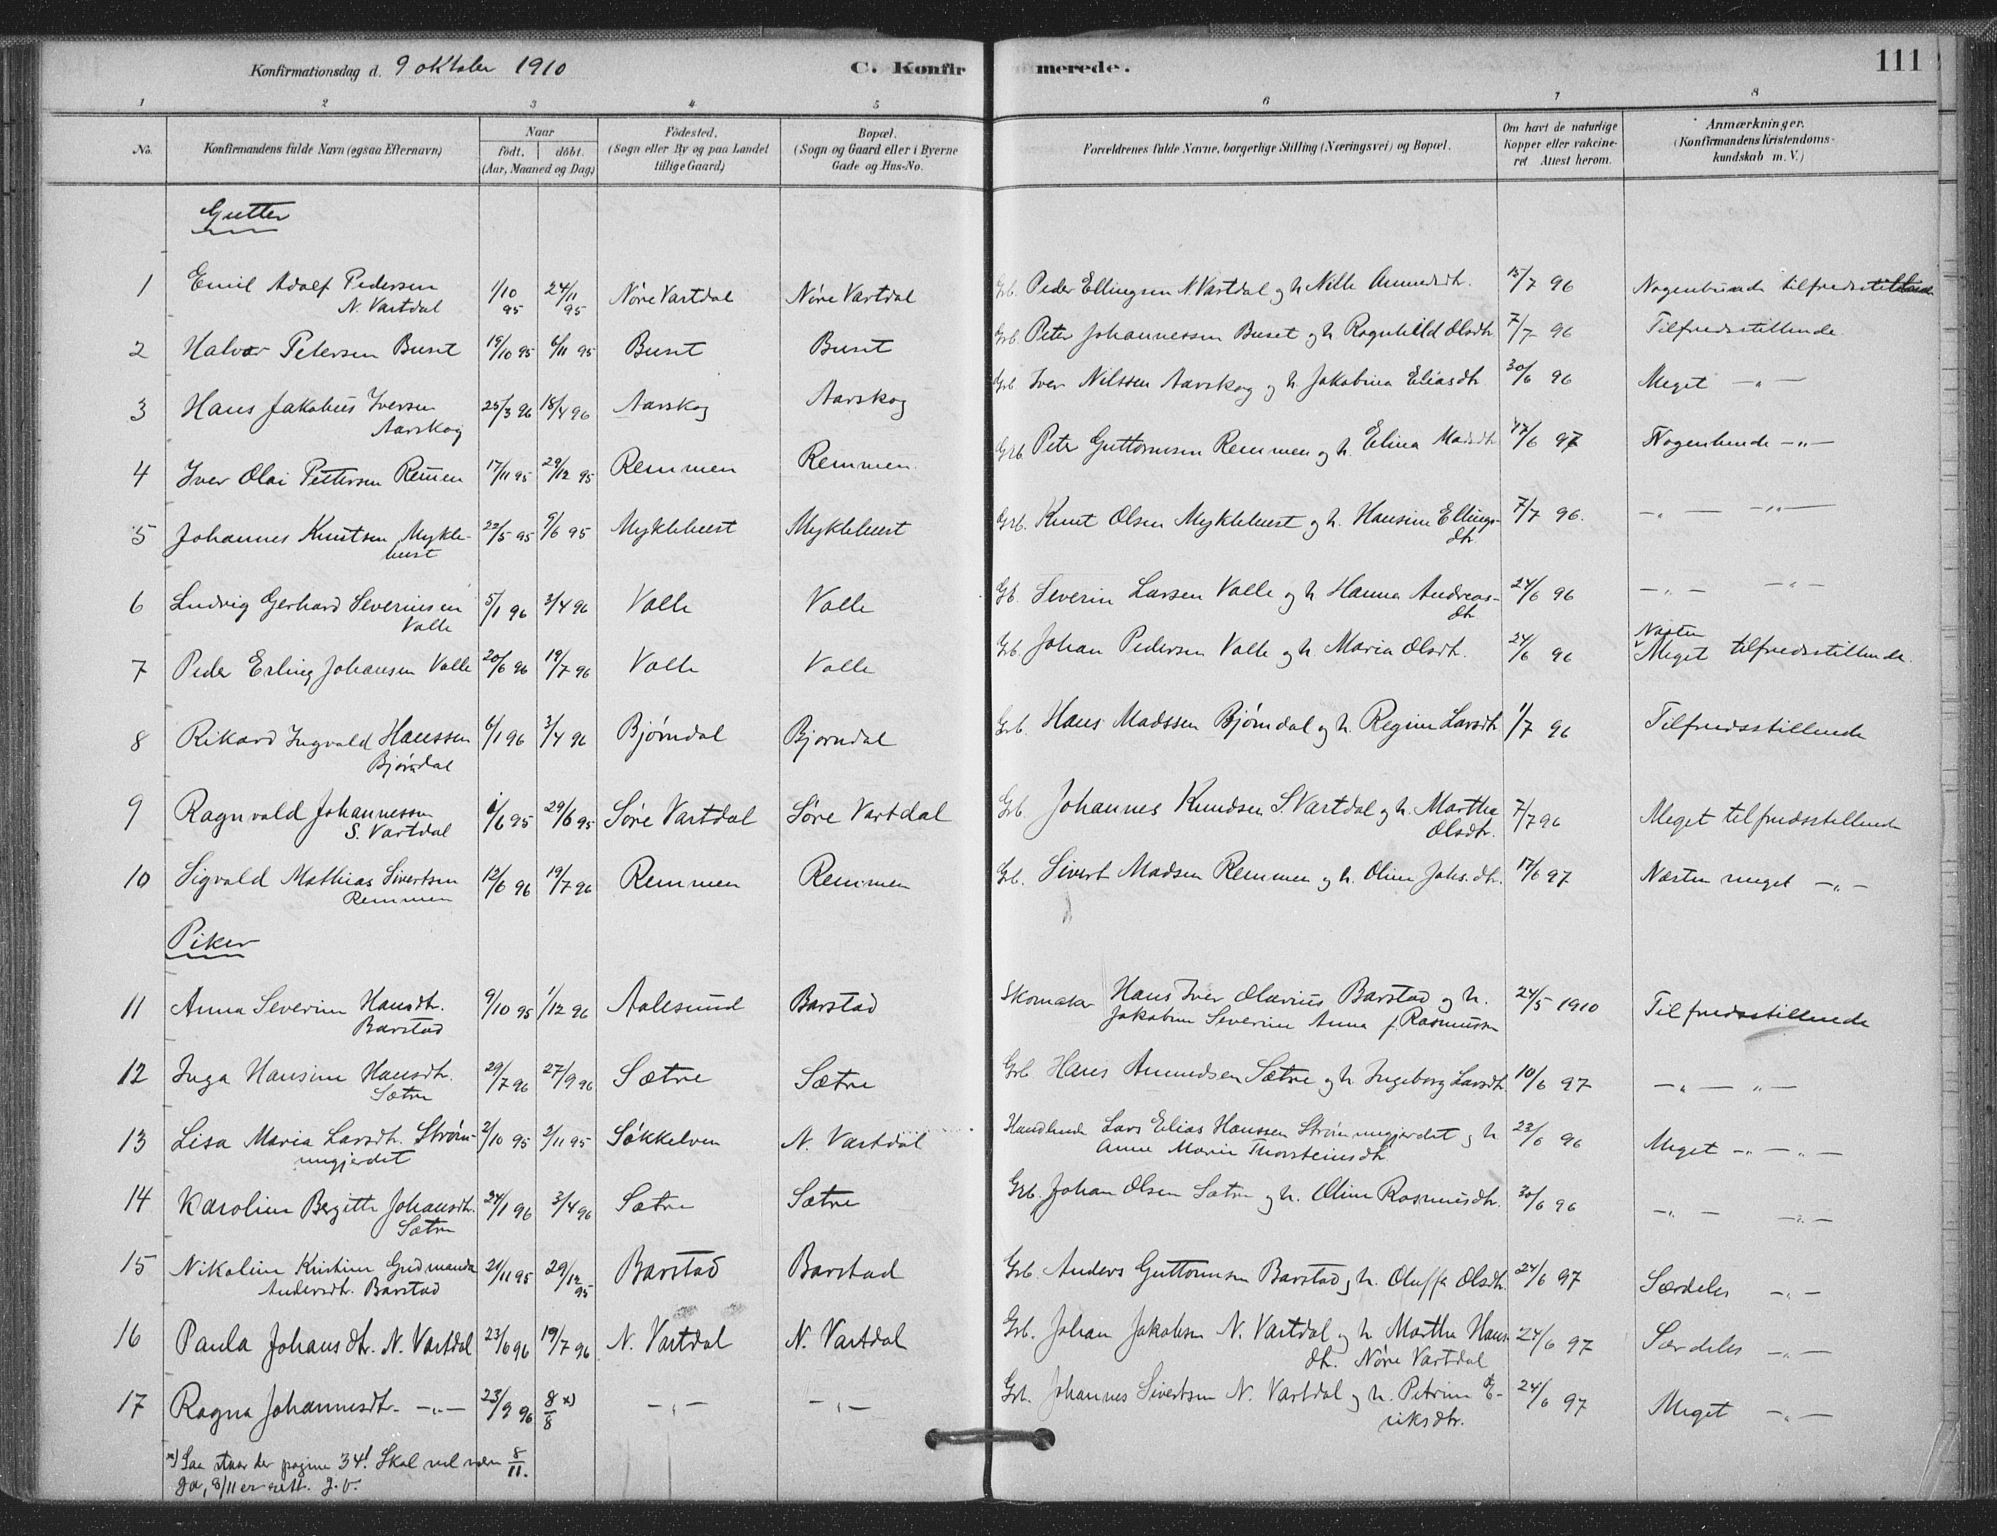 Konfirmationsdag d. 9 oktober 1910
C. Konfirmerede.
111
1 2 3 4 5 6 7 8
No.
Konfirmandens fulde Navn (ogsaa Efternavn)
Naar
født. døbt.
(Aar, Maaned og Dag)
Fødested.
(Sogn eller By og paa Landet
tillige Gaard)
Bopæl.
(Sogn og Gaard eller i Byerne
Gade og Hus-No.
Forældrenes fulde Navne, borgerlige Stilling (Næringsvei) og Bopæl.
Om havt de naturlige
Kopper eller vakcine-
ret Attest herom.
Anmærkninger.
(Konfirmandens Kristendoms-
kundskab m. V.)
Gutter
1 Emil Adolf Pedersen N. Vartdal 1/10 95 24/11 95 Nøre Vartdal Nøre Vartdal Grb. Peder Ellingsen N. Vartdal og h. Nille Amundsdtr. 15/7 96 Nogenlunde tilfredsstillende
2 Halvar Petersen Buset 19/10 95 6/11 95 Buset Buset Grb. Peter Johannessen Buset og h. Ragnhild Olsdtr 7/7 96 Tilfredsstillende
3 Hans Jakobus Iversen Aarskog 25/3 96 18/4 96 Aarskog Aarskog Grb Iver Nilssen Aarskog og h. Jakobina Eliasdtr 30/6 96 Meget —„—
4 Iver Olai Pettersen Remen 17/11 95 29/12 95 Remmen Remmen. Grb. Peter Guttormsen Remmen og h. Elina Madsdtr 17/6 97 Nogenlunde —„—
5 Johannes Knutsen Mykle-
bust 22/5 95 9/6 95 Myklebust Myklebust Grb. Knut Olsen Myklebust og h. Hansine Ellings-
dtr. 7/7 96. —„— —„—
6 Ludvig Gerhard Severinsen Valle 5/1 96 3/4 96 Valle Valle Gb. Severin Larsen Valle og h Hanna Andreas-
dtr 24/6 96 —„— —„—
7 Peder Erling Johansen Valle 20/6 96 19/7 96 Valle Valle Grb. Johan Pedersen Valle og h. Maria Olsdtr. 24/6 96 Næsten Meget tilfredsstillende.
8 Rikard Ingvald Hanssen Bjørndal 6/1 96 3/4 96 Bjørndal Bjørndal Grb. Hans Madssen Bjørndal og h. Regine Larsdtr 1/7 96 Tilfredsstillende
9 Ragnvald Johannessen S. Vartdal 1/6 95 29/6 95 Søre Vartdal Søre Vartdal Grb. Johannes Knudsen S. Vartdal og h. Martha Olsdtr. 7/7 96 Meget tilfredsstillende
10 Sigvald Mathias Sivertsen Remmen 12/6 96 19/7 96 Remmen Remmen Grb. Sivert Madsen Remmen og h. Oline Johs.dtr. 17/6 97 Næsten meget —„—
Piker
11 Anna Severine Hansdtr. Barstad 9/10 95 1/12 96 Aalesund Barstad Skomaker Hans Iver Olavius Barstad og h.
Jakobine Severine Anna f. Rasmussen 24/5 1910 Tilfredsstillende
12 Inga Hansine Hansdtr. Sætre 29/7 96 27/9 96 Sætre Sætre Grb Hans Amundsen Sætre og h Ingeborg Larsdtr. 10/6 97 —„— „—
13 Lisa Maria Larsdtr. Strøm-
megjerdet 2/10 95 3/11 95 Søkkelven N. Vartdal Handlende Lars Elias Hanssen Strømmegjerdet og h
Anne Marie Thorsteinsdtr. 23/6 96 Meget —„— „—
14 Karoline Bergitte Johansdtr. Sætre 24/1 96 3/4 96 Sætre Sætre Grb. Johan Olsen Sætre og h. Oline Rasmusdtr. 30/6 96 —„— —„—
15 Nikoline Kristine Gudmunda
Andersdtr. Barstad 21/11 95 29/12 95 Barstad Barstad Grb. Anders Guttormsen Barstad og h. Oluffa Olsdtr. 24/6 97 Særdeles —„—
16 Paula Johansdtr. N. Vartdal 23/6 96 19/7 96 N. Vartdal N. Vartdal Grb. Johan Jakobsen N. Vartdal og h Martha Hans
dtr. Nøre Vartdal 24/6 97 Særdeles —„—
17 Ragna Johannesdtr. —„— 23/9 96 8/8 x) —„— —„— Grb. Johannes Sivertsen N. Vartdal og h. Petrine E-
riksdtr. 24/6 97 Meget —„—
x) Saa staar der pagina 34! Skal vel være 8/11.
Ja, 8/11 er rett. J. V.